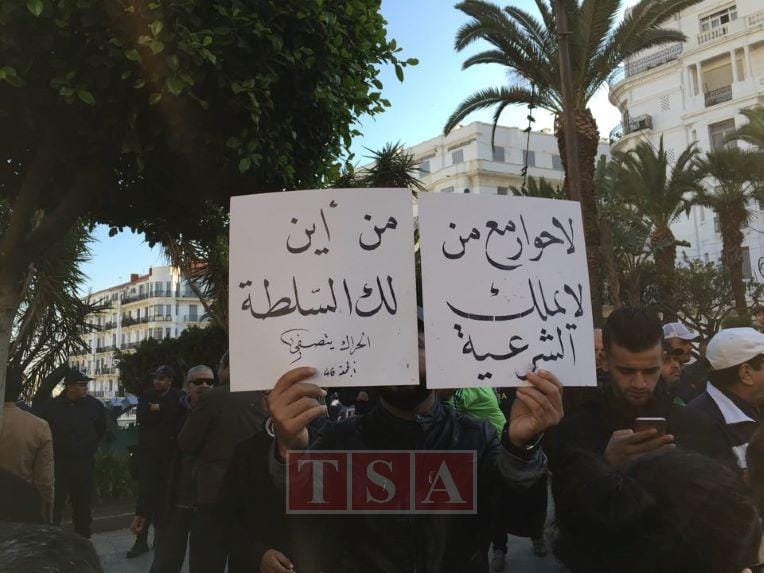 لا حوار مع من
لا يملك
الشرعية
من أين
لك السّلطة
الحراك
46
TSA